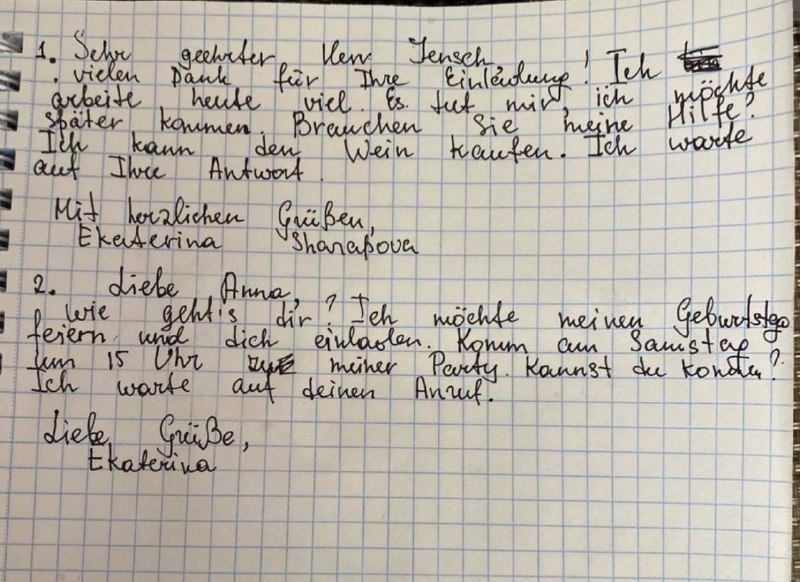 1. Sehr geehrter Herr Jensch,
vielen Dank für Ihre Einladung! Ich
arbeite heute viel. Es tut mir, ich möchte
später kommen. Brauchen Sie meine Hilfe?
Ich kann den Wein kaufen. Ich warte
auf Ihre Antwort.
Mit herzlichen Grüßen,
Ekaterina Sharapova
2. Liebe Anna,
wie geht's dir? Ich möchte meinen Geburtstag
feiern und dich einladen. Komm am Samstag
um 15 Uhr meiner Party. Kannst du
Ich warte auf deinen Anruf.
Liebe Grüße,
Ekaterina